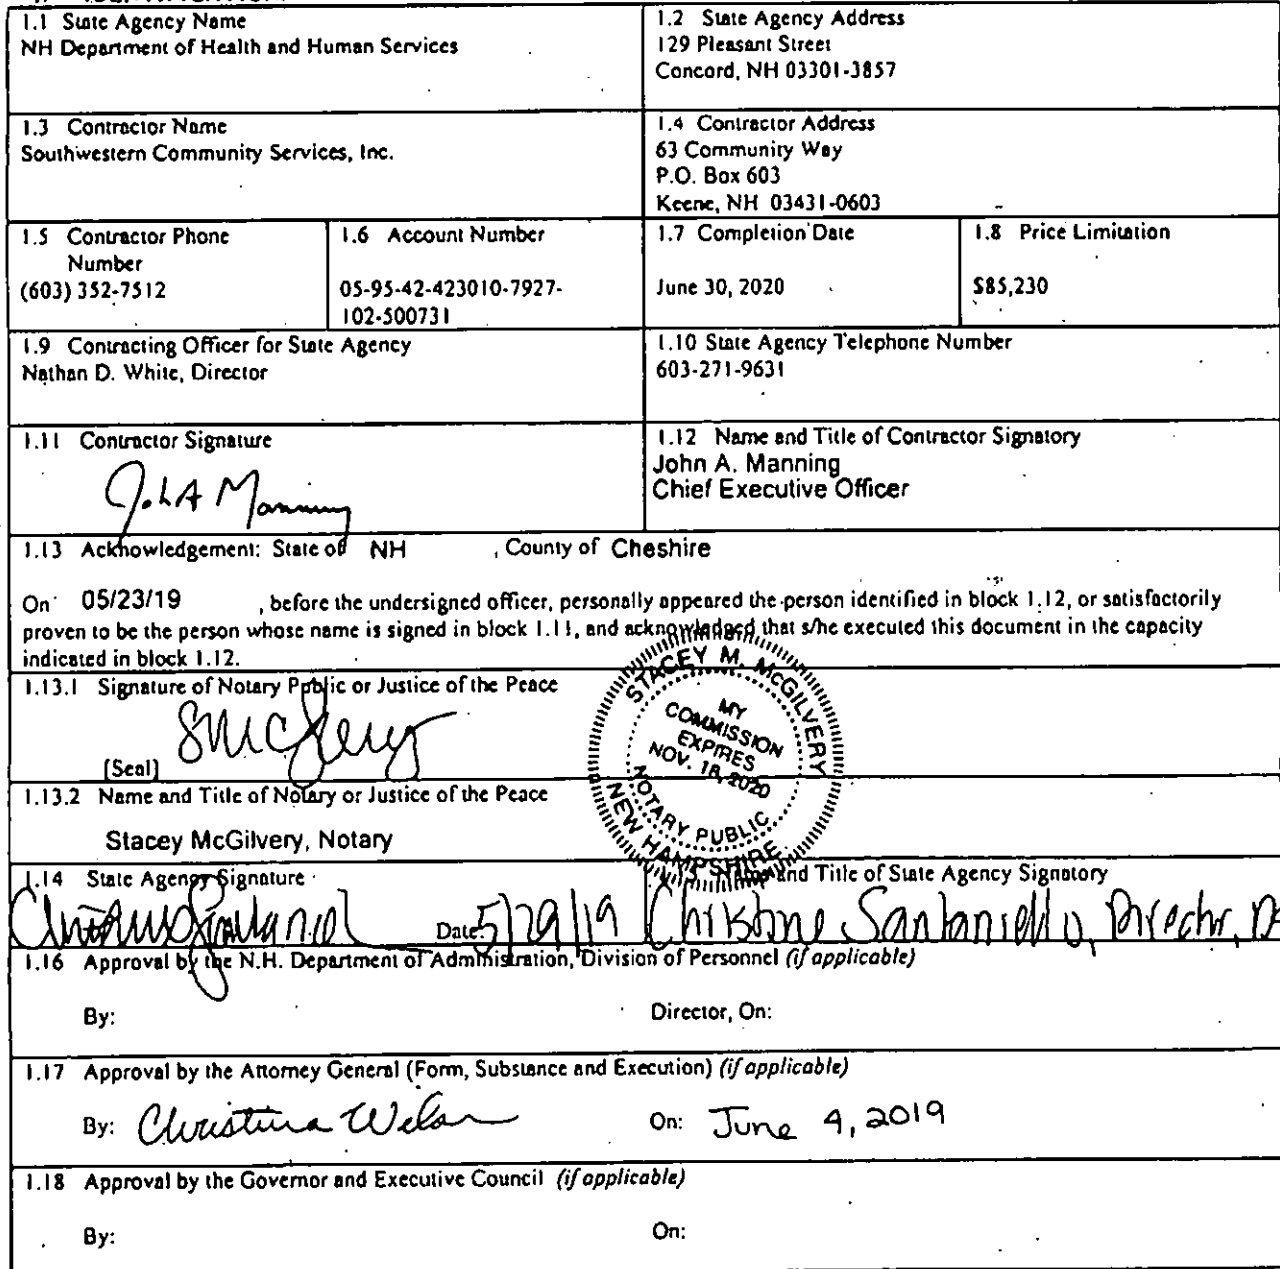 1.1 State Agency Name
NH Department of Health and Human Services
1.2 State Agency Address
129 Pleasant Street
Concord, NH 03301-3857
1.3 Contractor Name
Southwestern Community Services, Inc.
1.4 Contractor Address
63 Community Way
P.O. Box 603
Keene, NH 03431-0603
1.5 Contractor Phone
Number
(603) 352-7512
1.6 Account Number
05-95-42-423010-7927-
102-500731
1.7 Completion Date
June 30, 2020
1.8 Price Limitation
$85,230
1.9 Contracting Officer for State Agency
Nathan D. White, Director
1.10 State Agency Telephone Number
603-271-9631
1.11 Contractor Signature
John A Manning
1.12 Name and Title of Contractor Signatory
John A. Manning
Chief Executive Officer
1.13 Acknowledgement: State of NH , County of Cheshire
On 05/23/19 , before the undersigned officer, personally appeared the person identified in block 1.12, or satisfactorily
proven to be the person whose name is signed in block 1.11, and acknowledged that s/he executed this document in the capacity
indicated in block 1.12.
1.13.1 Signature of Notary Public or Justice of the Peace
[Seal]
STACEY M. McGILVERY
MY
COMMISSION
EXPIRES
NOV. 18, 2020
NOTARY PUBLIC
NEW HAMPSHIRE
1.13.2 Name and Title of Notary or Justice of the Peace
Stacey McGilvery, Notary
1.14 State Agency Signature
Date: 5/29/19
and Title of State Agency Signatory
Christine Santaniello, Director,
1.16 Approval by the N.H. Department of Administration, Division of Personnel (if applicable)
By: Director, On:
1.17 Approval by the Attorney General (Form, Substance and Execution) (if applicable)
By: Christina Wilson On: June 4, 2019
1.18 Approval by the Governor and Executive Council (if applicable)
By: On: